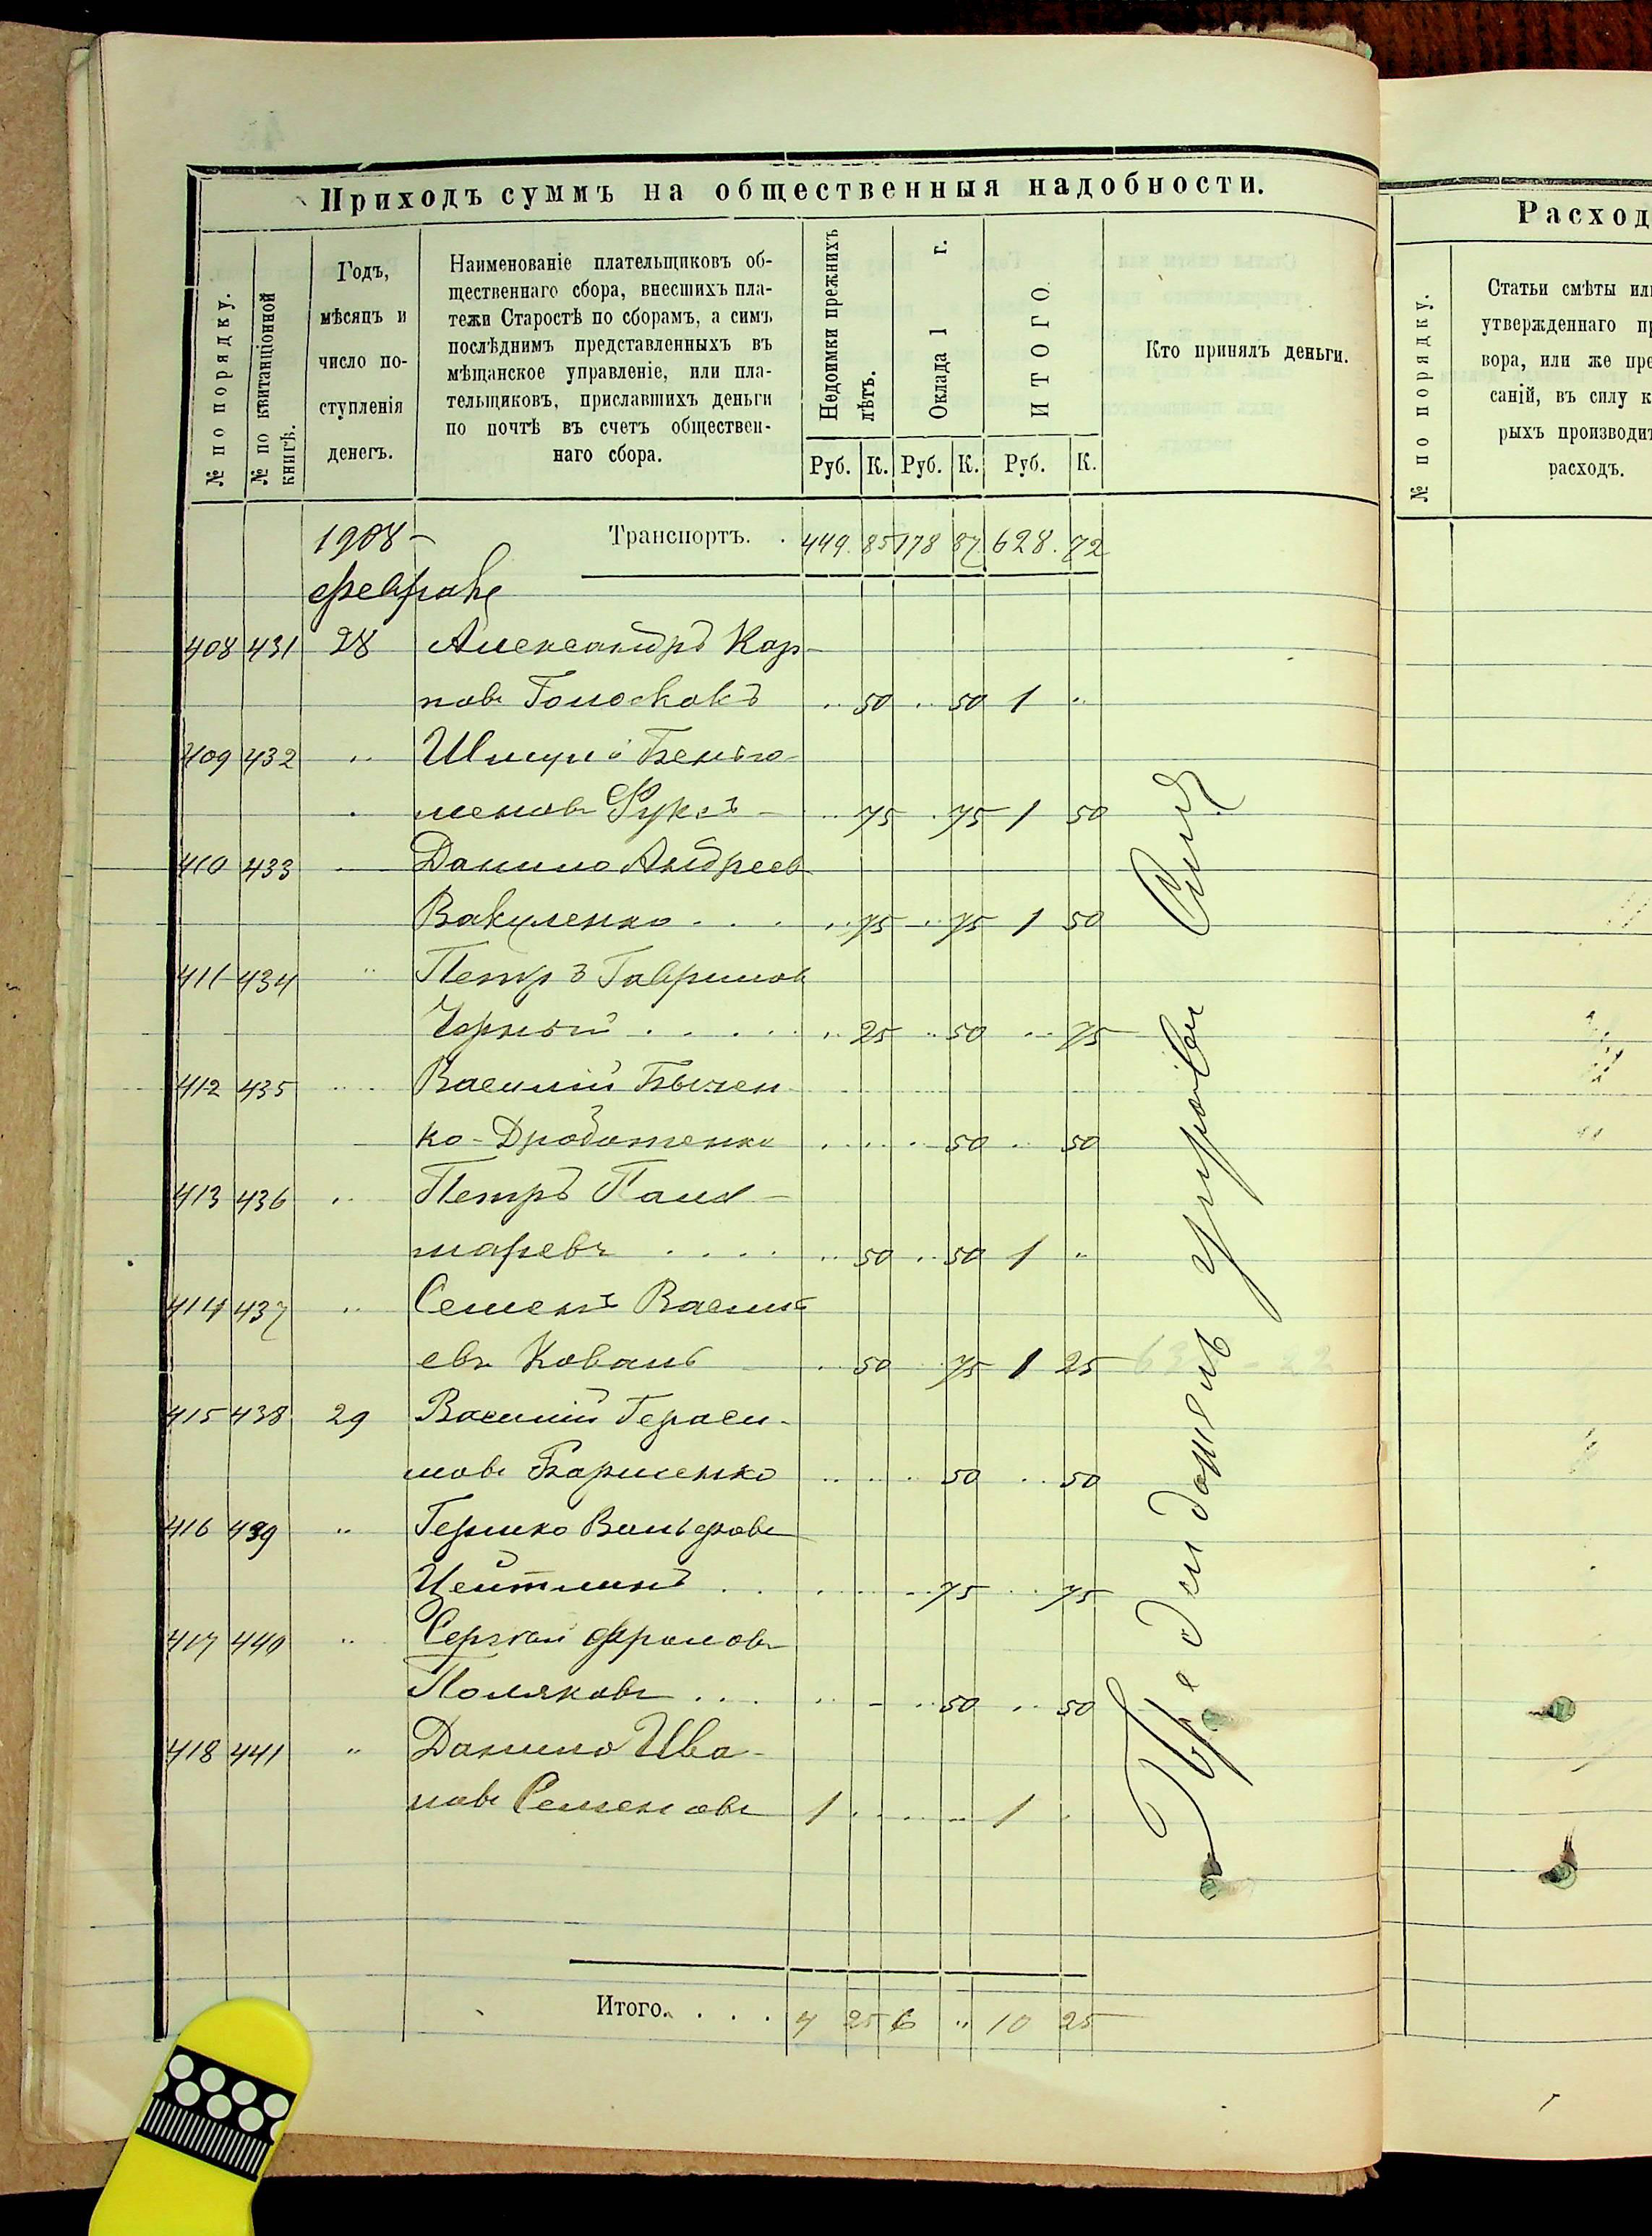 Приходъ суммъ на общественныя надобности.
№ по порядку.
№ по квитанціонной книгѣ.
Годъ, мѣсяцъ и число поступленія денегъ.
Наименованіе плательщиковъ об-
щественнаго сбора, внесшихъ пла-
тежи Старостѣ по сборамъ, а симъ
послѣднимъ представленныхъ въ
мѣщанское управленіе, или пла-
тельщиковъ, приславшихъ деньги
по почтѣ въ счетъ обществен-
наго сбора.
Недоимки прежнихъ лѣтъ.
Оклада 1 г.
ИТОГО
Кто принялъ деньги.
Руб. К. Руб. К. Руб. К.
1908 Транспортъ. . 449. 85 178 87 628. 72
февраль
408 431 28 Александръ Кар-
повъ Голоскокъ .. 50 .. 50 1 ..
409 432 ..
меновъ Фуксъ .. 75 . 75 1 50
410 433 Данило Андреев
Вакуленко . . . .. 75 .. 75 1 50
411 434 .. Петръ Гаврилов
Черный . . . . . .. 25 .. 50 .. 75
412 435 .. Василій Бычен
ко-Дроботенко . . . . 50 .. 50
413 436 .. Петръ Пала-
маревъ . . . . .. 50 .. 50 1 ..
414 437 .. Семенъ Василь
евъ Коваль . 50 . 75 1 25
415 438 29 Василій Гераси-
мовъ .. .. . 50 .. 50
416 439 .. Гершко Вольфовъ
Цейтлинъ . . . . . . 75 .. 75
417 440 .. Сергѣй
Поляковъ . . . .. - .. 50 .. 50
418 441 .. Данило Ива-
новъ Семеновъ 1 . . . . 1 .
Итого. . . . 4 25 6 .. 10 25
Предсѣдатель управы
Расход
№ по порядку.
Статьи смѣты ил
утвержденнаго пр
вора, или же пре
саній, въ силу к
рыхъ производит
расходъ.